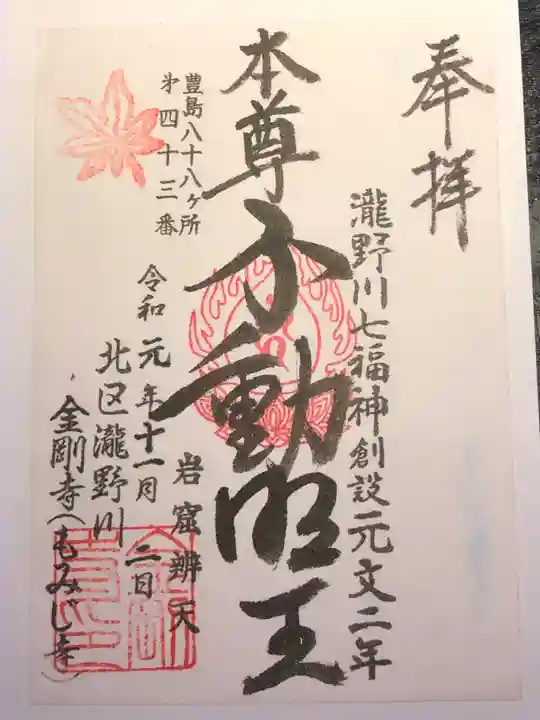 奉拝
瀧野川七福神創設元文二年
本尊不動明王
岩窟辨天
豊島八十八ヶ所
第四十三番
令和元年十一月二日
北区瀧野川
金剛寺(もみじ寺)